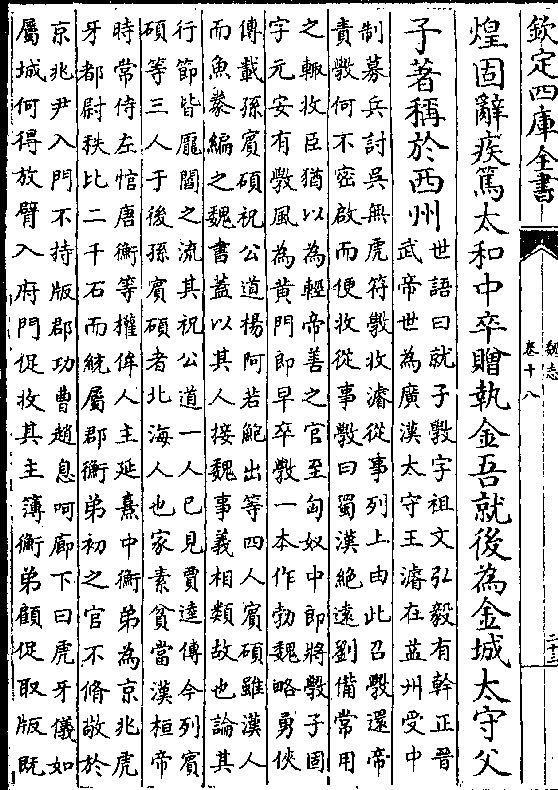 欽定四庫全書
魏志
卷十八
二十三
煌固辭疾篤太和中卒贈執金吾就後為金城太守父
子著稱於西州
世語曰就子斆字祖文弘毅有幹正晉
武帝世為廣漢太守王濬在益州受中
制募兵討吳無虎符斆收濬從事列上由此召斆還帝
責斆何不密啟而便收從事斆曰蜀漢絕遠劉備常用
之輒收臣猶以為輕帝善之官至匈奴中郎將斆子固
字元安有斆風為黃門郎早卒斆一本作勃魏略勇俠
傳載孫賓碩祝公道楊阿若鮑出等四人賓碩雖漢人
而魚豢編之魏書蓋以其人接魏事義相類故也論其
行節皆龎閻之流其祝公道一人已見賈逵傳今列賓
碩等三人于後孫賓碩者北海人也家素貧當漢桓帝
時常侍左悺唐衡等權侔人主延熹中衡弟為京兆虎
牙都尉秩比二千石而統屬郡衡弟初之官不脩敬於
京兆尹入門不持版郡功曹趙息呵廊下曰虎牙儀如
屬城何得放臂入府門促收其主簿衡弟顧促取版既